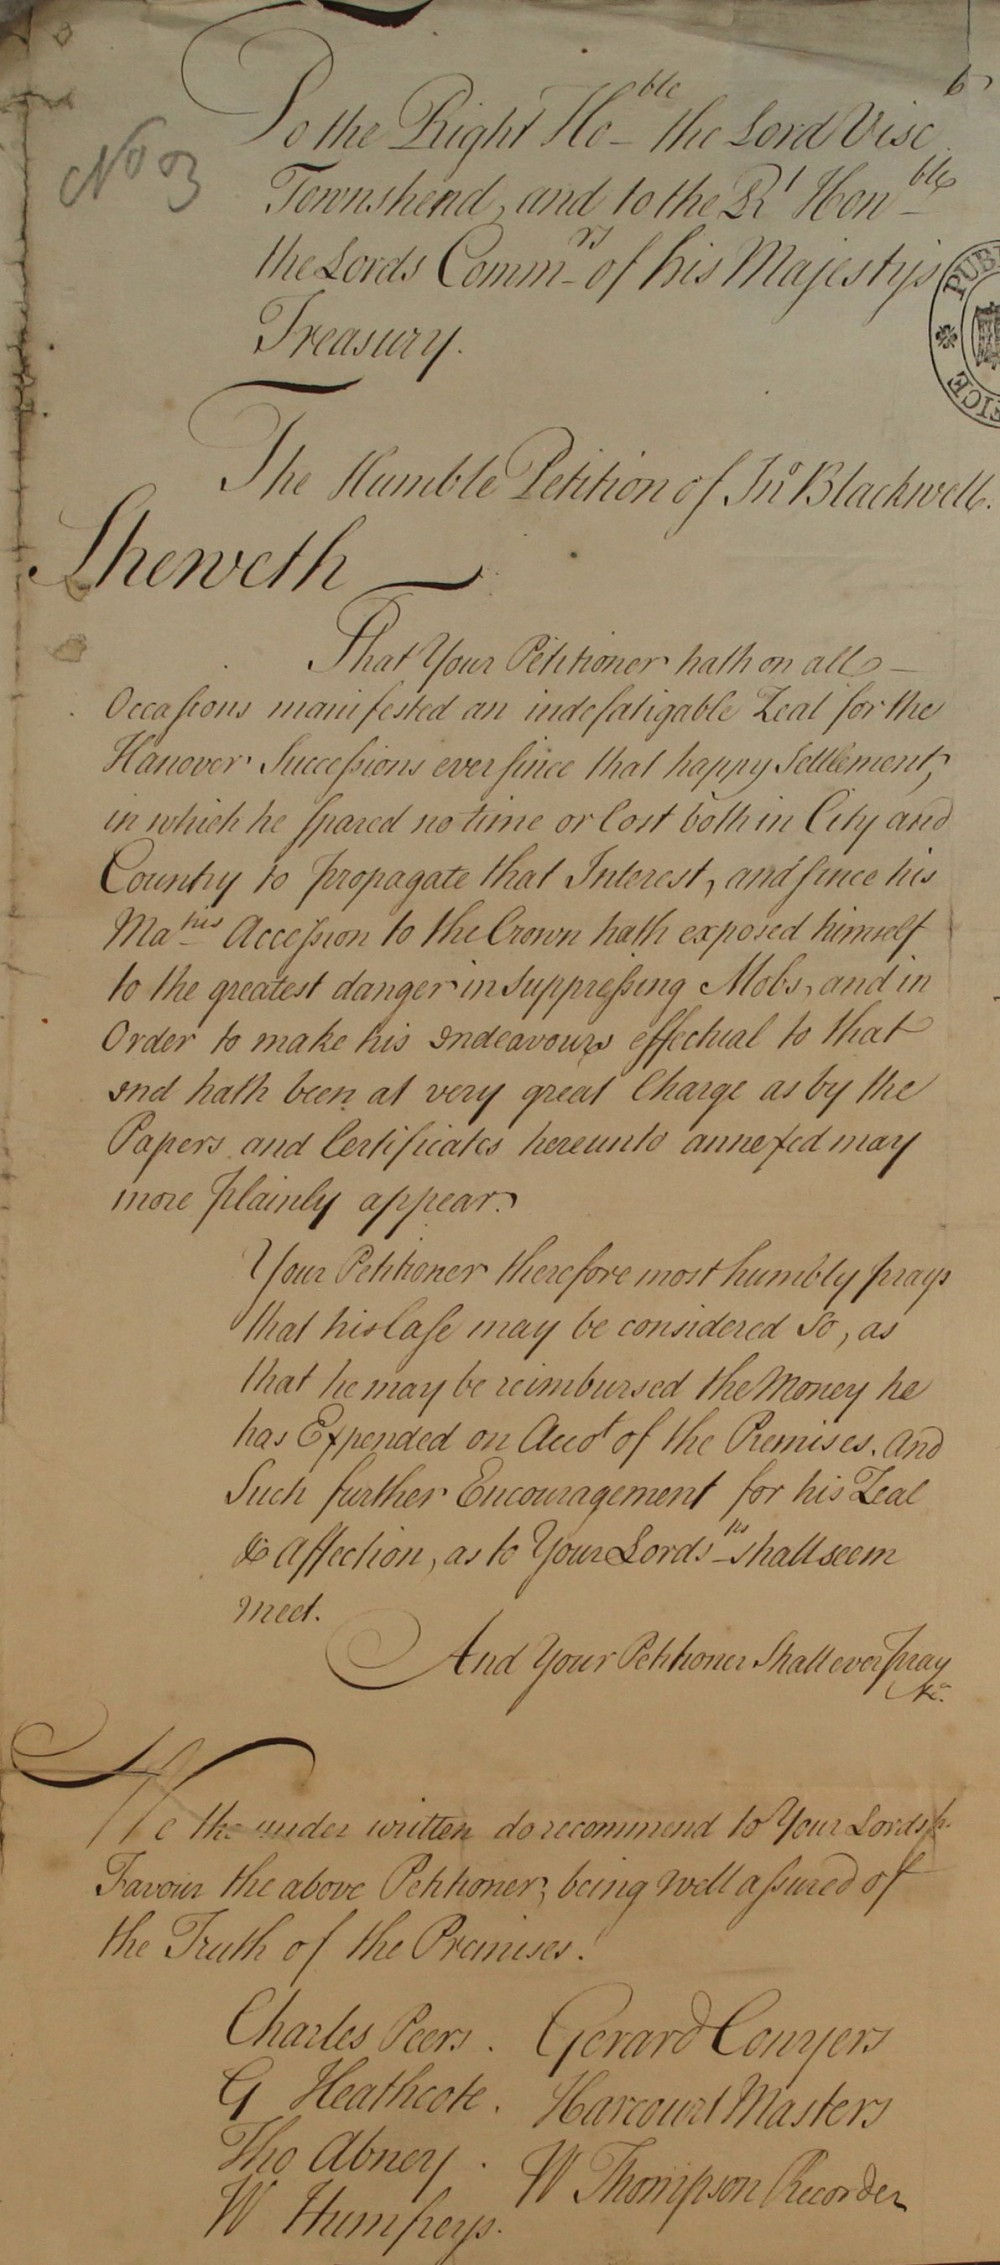 6
No 3
To the Right Ho^ble the Lord Visc
Townshend, and to the R^t Hon^ble
the Lords Comm^rs of his Majestys
Treasury.
PUB
OFFICE
The Humble Petition of Jn^o Blackwell.
Sheweth
That Your Petitioner hath on all
Occasions manifested an indefatigable Zeal for the
Hanover Successions ever since that happy Settlement,
in which he spared no time or Cost both in City and
Country to propagate that Interest, and since his
Ma^ties Accession to the Crown hath exposed himself
to the greatest danger in Suppressing Mobs, and in
Order to make his Endeavours effectual to that
End hath been at very great Charge as by the
Papers and Certificates hereunto annexed may
more plainly appear.
Your Petitioner therefore most humbly prays
that his Case may be considered So, as
that he may be reimbursed the Money he
has Expended on Acco^t of the Premises. And
Such further Encouragement for his Zeal
& Affection, as to Your Lords^ps shall seem
meet.
And Your Petitioner Shall ever Pray
&c.
We the under written do recommend to Your Lordsp.
Favour the above Petitioner, being well assured of
the Truth of the Premises.
Charles Peers. Gerard Conyers
G Heathcote. Harcourt Masters
Tho Abney. W Thompson Recorder
W Humfreys.